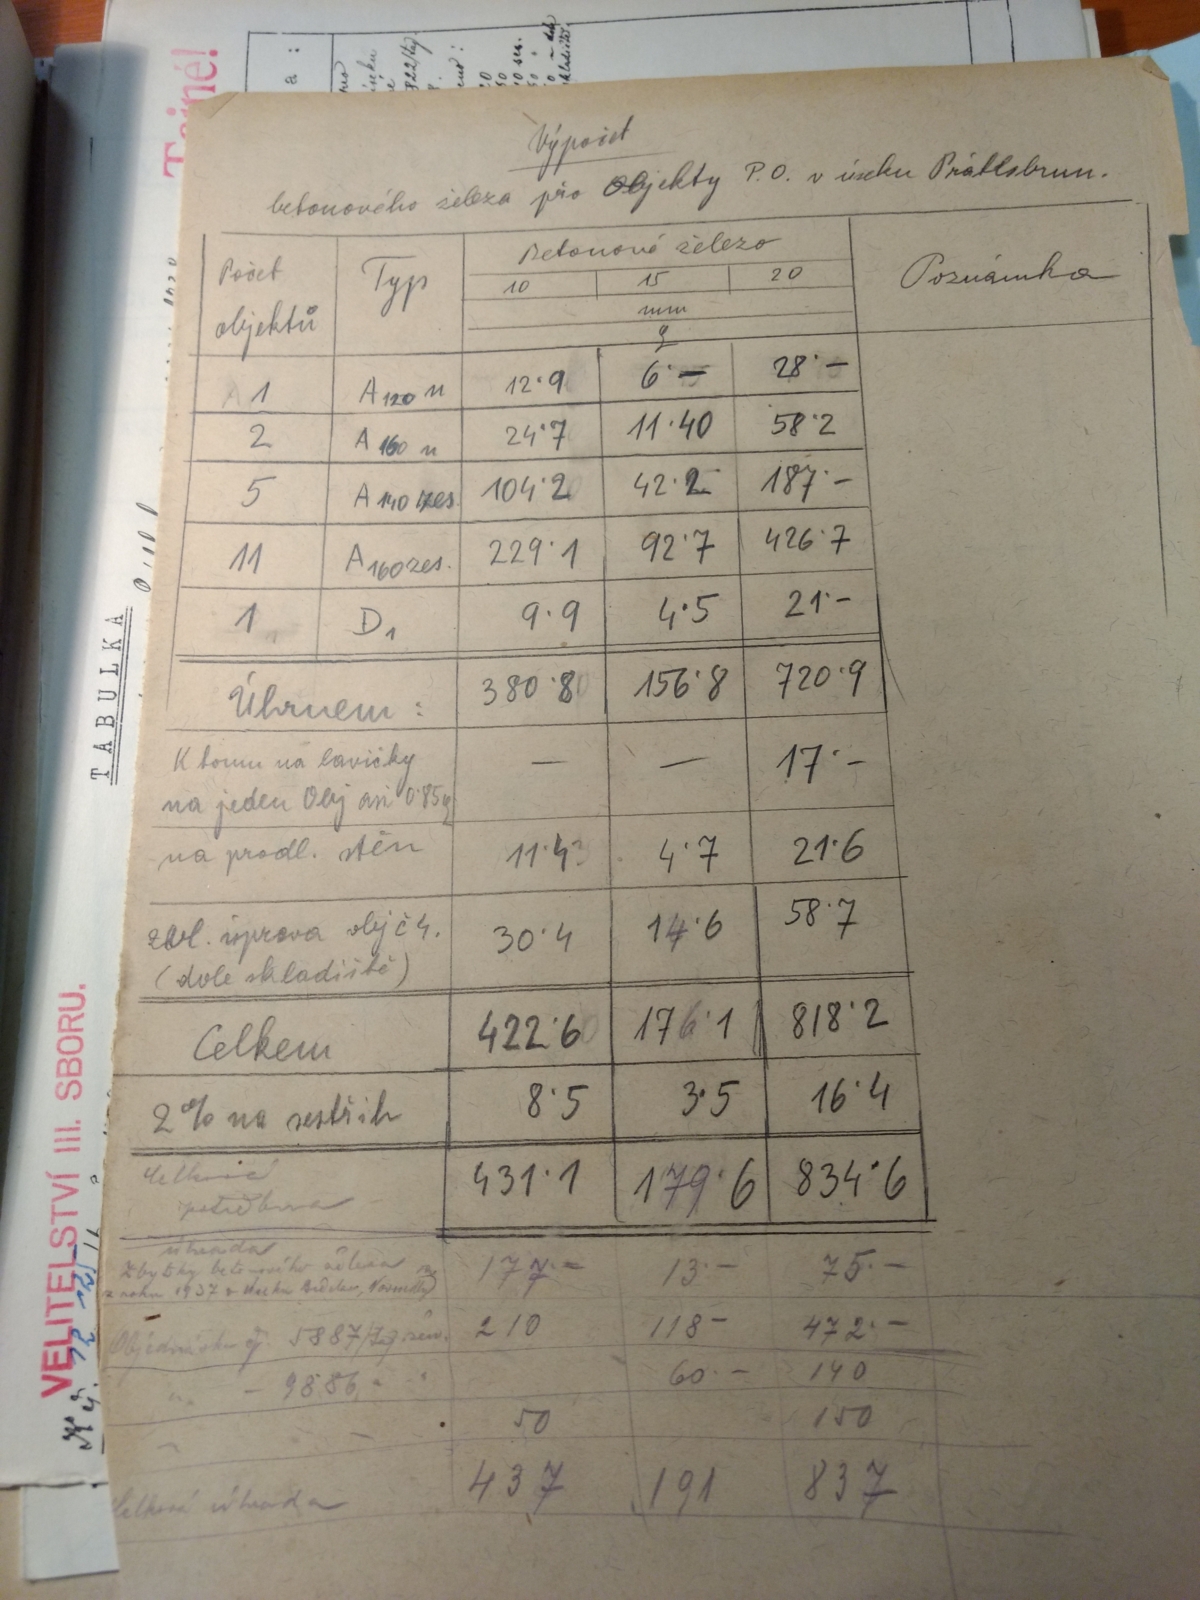 Tajné!
a :
Výpočet
betonového železa pro Objekty P.O. v úseku Prátlsbrun.
Počet objektů | Typ | Betonové železo | Poznámka
10 | 15 | 20
mm
q
1 | A 120 n | 12·9 | 6·— | 28·—
2 | A 160 n | 24·7 | 11·40 | 58·2
5 | A 140 zes. | 104·2 | 42·2 | 187·—
11 | A 160 zes. | 229·1 | 92·7 | 426·7
1 | D1 | 9·9 | 4·5 | 21·—
Úhrnem : | 380·8 | 156·8 | 720·9
K tomu na lavičky
na jeden Obj asi 0·85q | — | — | 17·—
na prodl. stěn | 11·4 | 4·7 | 21·6
zvl. úprava obj č 4. | 30·4 | 14·6 | 58·7
(dole skladiště)
Celkem | 422·6 | 176·1 | 818·2
2% na sestřih | 8·5 | 3·5 | 16·4
Celková
potřeba | 431·1 | 179·6 | 834·6
úhrada
Zbytky betonového železa
z roku 1937 v úseku | 177·— | 13·— | 75·—
Objednávka čj. 5887 | 210 | 118— | 472·—
— 9886 | 60·— | 140
50 | 150
Celková úhrada | 437 | 191 | 837
TABULKA
VELITELSTVÍ III. SBORU.